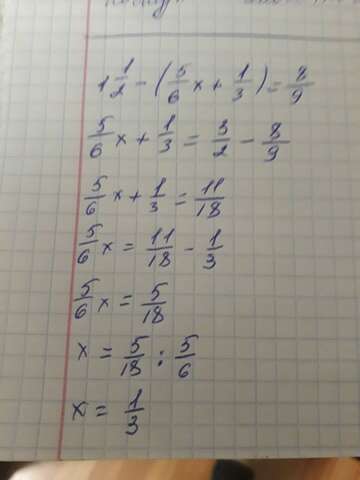 1 1/2 - (5/6 x + 1/3) = 8/9
5/6 x + 1/3 = 3/2 - 8/9
5/6 x + 1/3 = 11/18
5/6 x = 11/18 - 1/3
5/6 x = 5/18
x = 5/18 : 5/6
x = 1/3